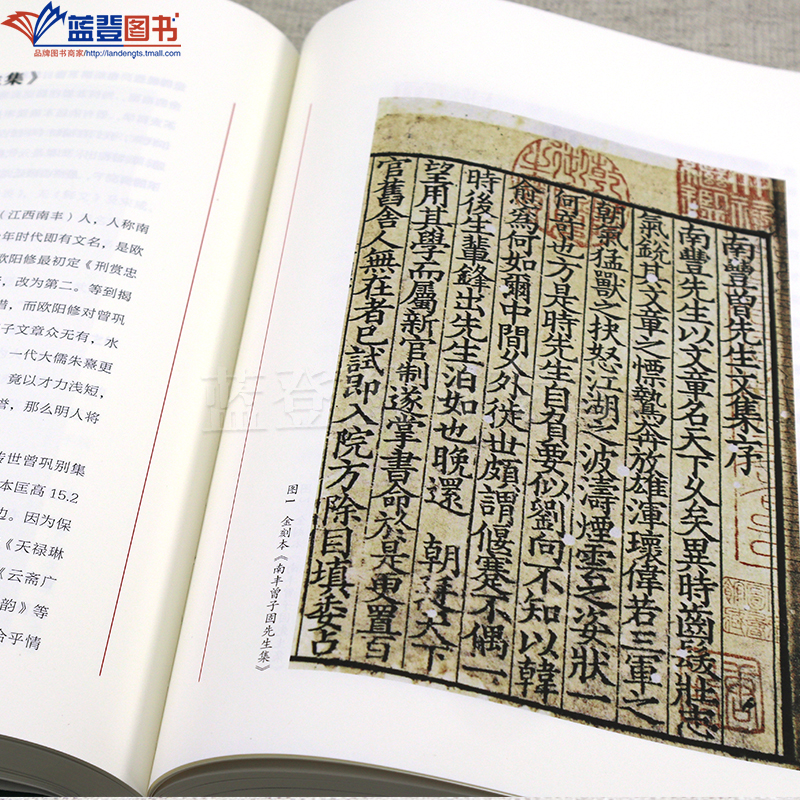 蓝登图书
品牌图书商家/http://landengts.tmall.com
集》
（江西南丰）人，人称南
年时代即有文名，是欧
欧阳修最初定《刑赏忠
，改为第二。等到揭
惜，而欧阳修对曾巩
子文章众无有，水
一代大儒朱熹更
竟以才力浅短，
昔，那么明人将
传世曾巩别集
本匡高 15.2
也。因为保
《天禄琳
《云斋广
韵》等
合乎情
南豐曾先生文集序
南豐先生以文章名天下久矣異時齒髮壯志
氣銳其文章之慓鷙奔放雄渾瓌偉若三軍之
朝氣猛獸之抉怒江湖之波濤煙雲之姿狀一
何奇也方是時先生自負要似劉向不知以韓
愈為何如爾中間久外徙世頗謂偃蹇不偶一
時後生輩鋒出先生泊如也晚還 朝 天下
望用其學而屬新官制遂掌書命於是更置百
官舊舍人無在者已試即入院方除目填委占
图一 金刻本《南丰曾子固先生集》
蓝登